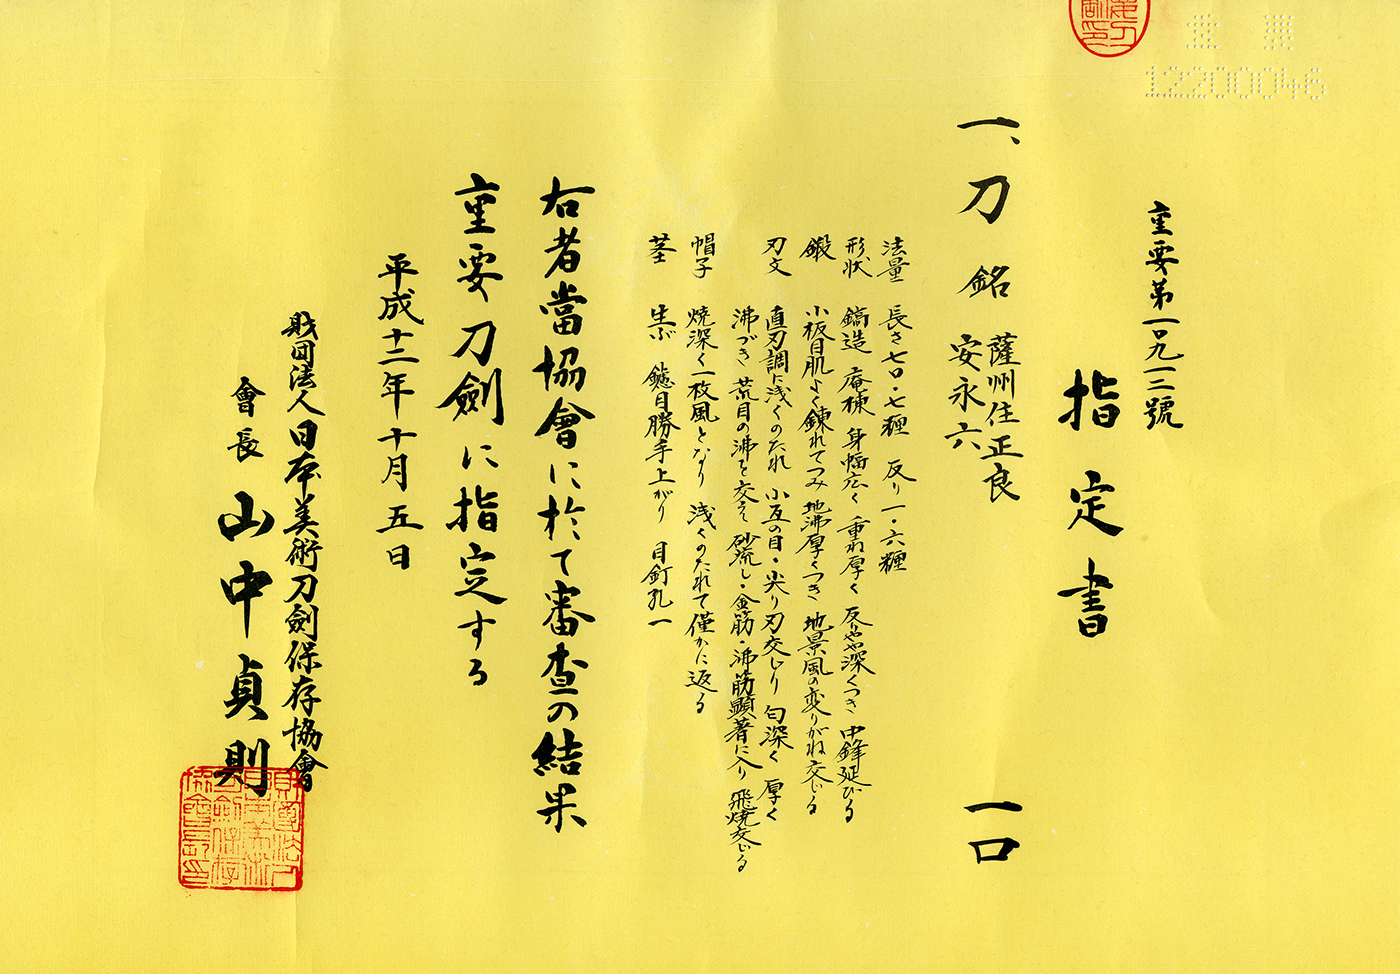 重要
12200046
重要第一〇九一二號
指定書
一、刀 銘 薩州住正良 一口
安永六
法量 長さ七〇・七糎 反り一・六糎
形状 鎬造 庵棟 身幅広く 重ね厚く 反りやや深くつき 中鋒延びる
鍛 小板目肌よく錬れてつみ 地沸厚くつき 地景風の変りがね交じる
刃文 直刃調に浅くのたれ 小互の目・尖り刃交じり 匂深く 厚く
沸づき 荒目の沸を交えて 砂流し・金筋・沸筋顕著に入り 飛焼交じる
帽子 焼深く一枚風となり 浅くのたれて僅かに返る
茎 生ぶ 鑢目勝手上がり 目釘孔一
右者當協會に於て審査の結果
重要刀劍に指定する
平成十二年十月五日
財団法人日本美術刀劍保存協會
會長 山中貞則